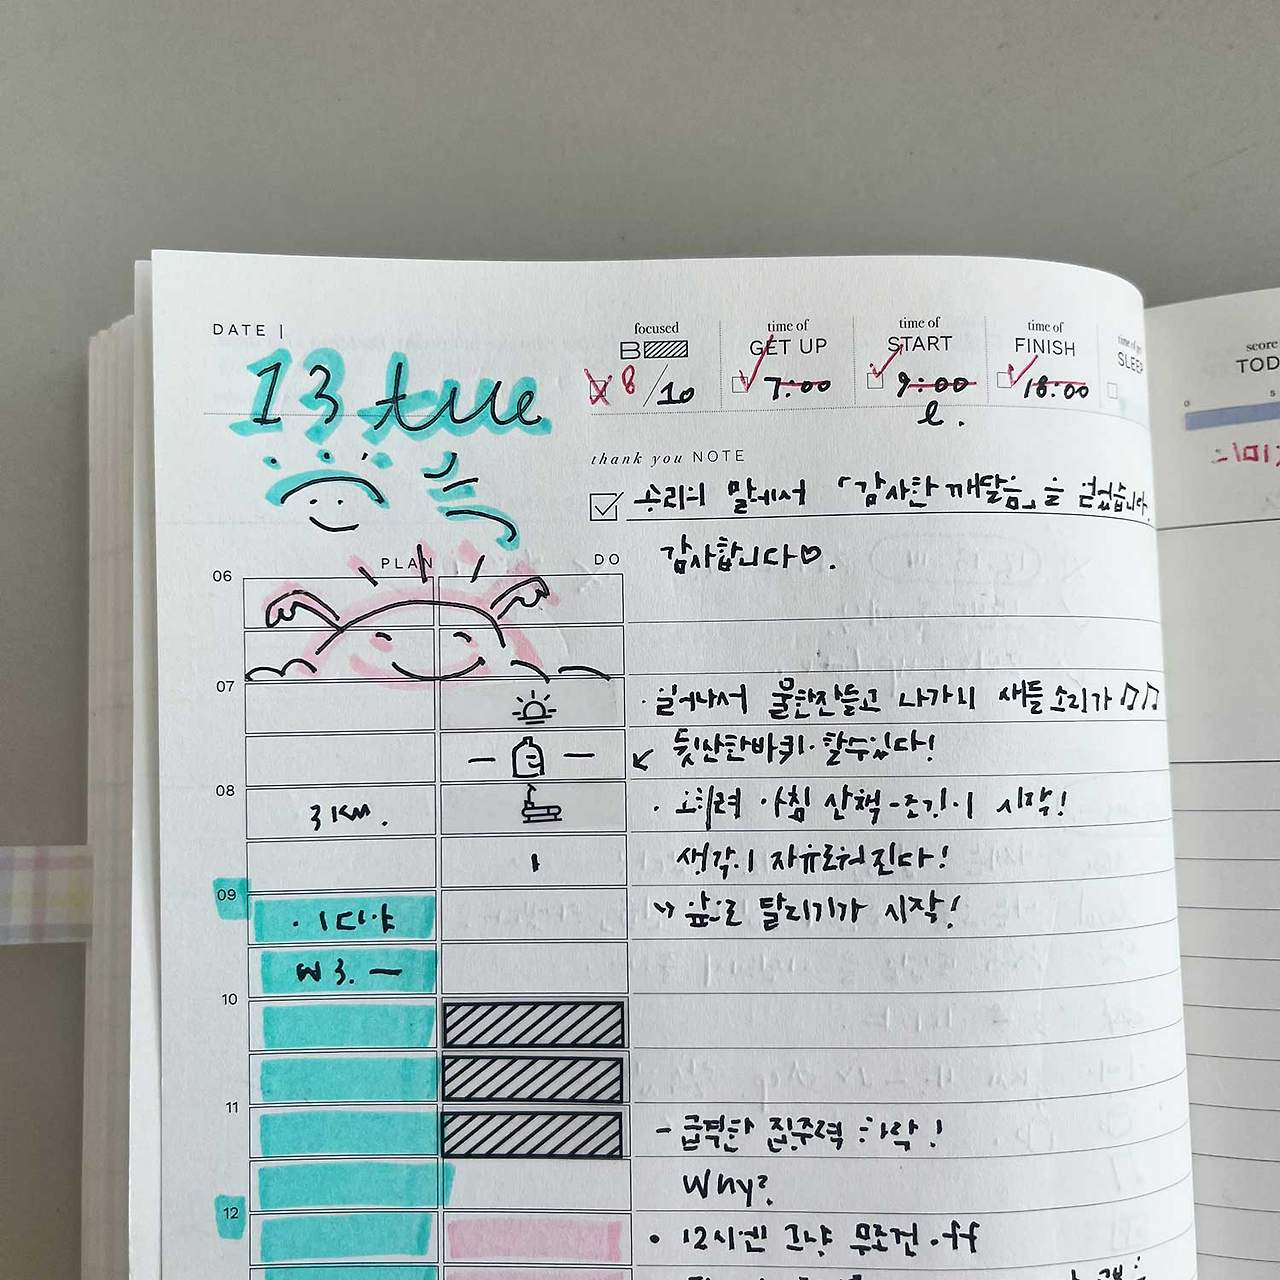 DATE |
13 tue
focused
B
8/10
time of
GET UP
7:00
time of
START
9:00
time of
FINISH
18:00
SLEEP
score
TOD
thank you NOTE
승리의 말에서 「감사한 깨달음」을 얻었습니다.
감사합니다♡.
PLAN DO
06
07
일어나서 물한잔들고 나가니 새들 소리가 ♫♫
뒷산한바퀴. 할수있다!
08
3KM.
· 오히려 아침 산책-조깅이 시작!
생각이 자유로워진다!
09
· 앞으로 달리기가 시작!
10
11
- 급격한 집중력 하락!
Why?
12
• 12시엔 그냥 무조건 off